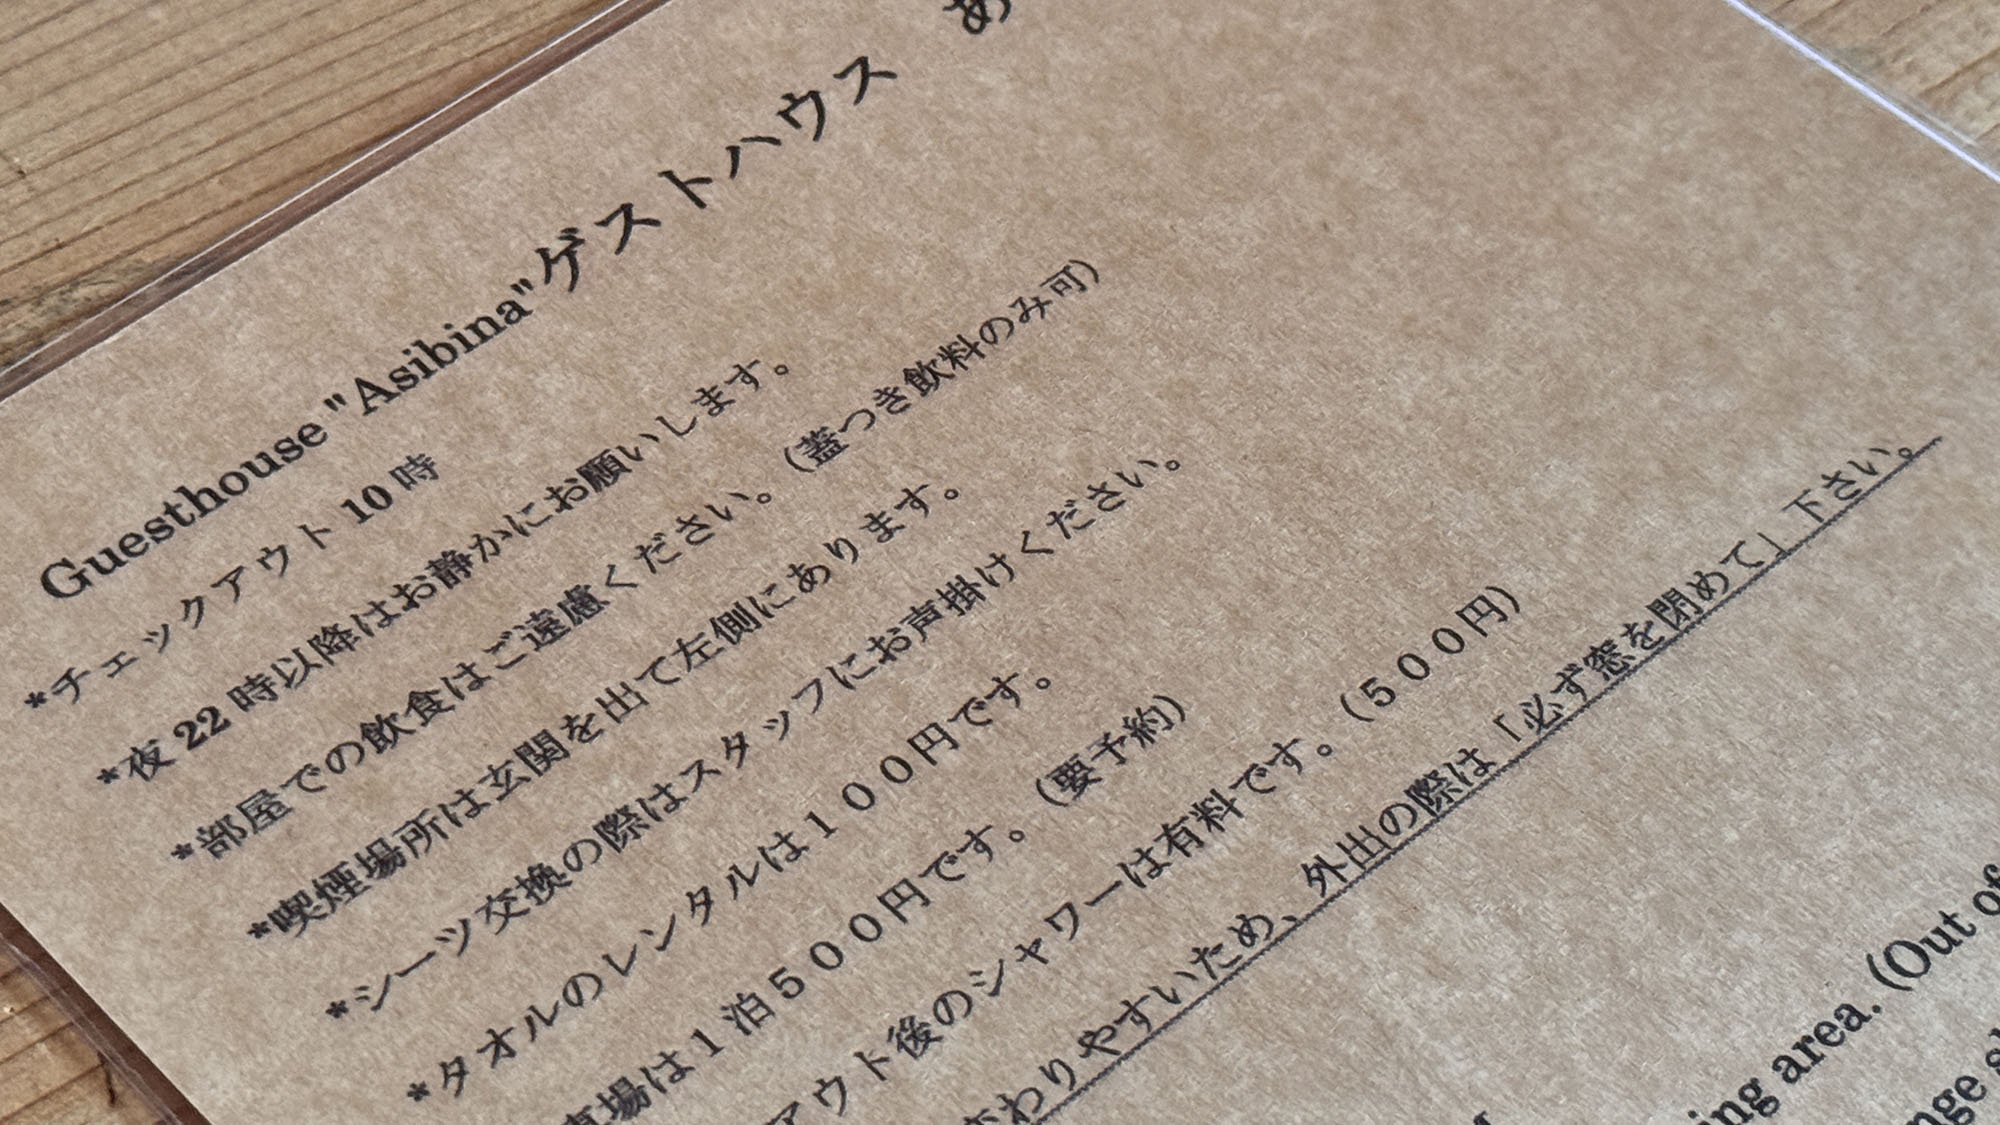 Guesthouse "Asibina"ゲストハウス あ
*チェックアウト 10 時
*夜 22 時以降はお静かにお願いします。
*部屋での飲食はご遠慮ください。(蓋つき飲料のみ可)
*喫煙場所は玄関を出て左側にあります。
*シーツ交換の際はスタッフにお声掛けください。
*タオルのレンタルは100円です。
車場は1泊500円です。(要予約)
アウト後のシャワーは有料です。(500円)
変わりやすいため、外出の際は「必ず窓を閉めて」下さい。
ing area. (Out of
nge